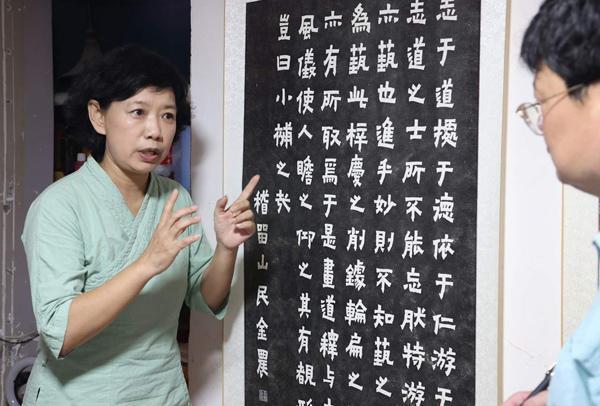 志于道據于德依于仁游于
志道之士所不能忘肰特游
亦藝也進乎妙則不知藝之
為藝此梓慶之削鐻輪扁之
亦有所取焉于是畫道釋与
風儀使人瞻之仰之其有覩
豈曰小補之哉
稽畱山民金農